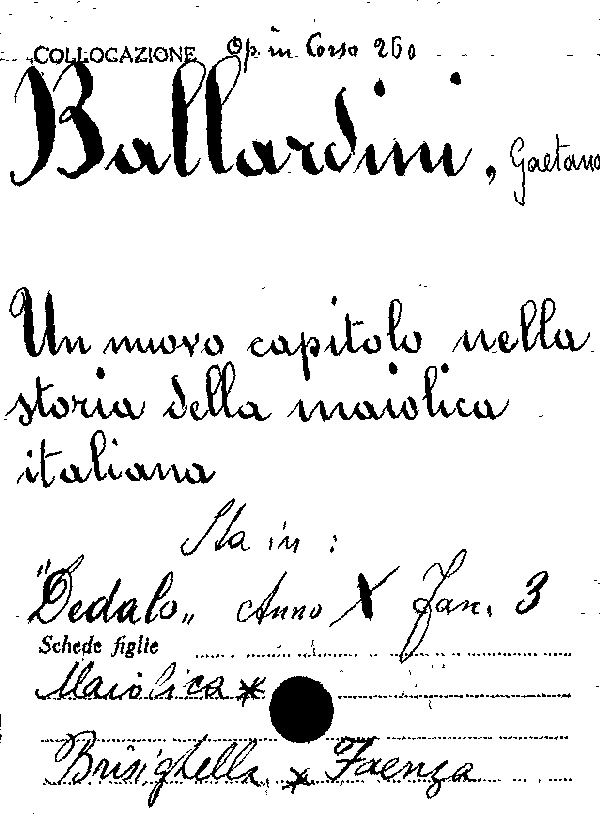 COLLOCAZIONE Op. in Corso 260
Ballardini, Gaetano
Un nuovo capitolo nella
storia della maiolica
italiana
Sta in :
"Dedalo„ Anno X Fax. 3
Schede figlie
Maiolica *
Brisighella * Faenza